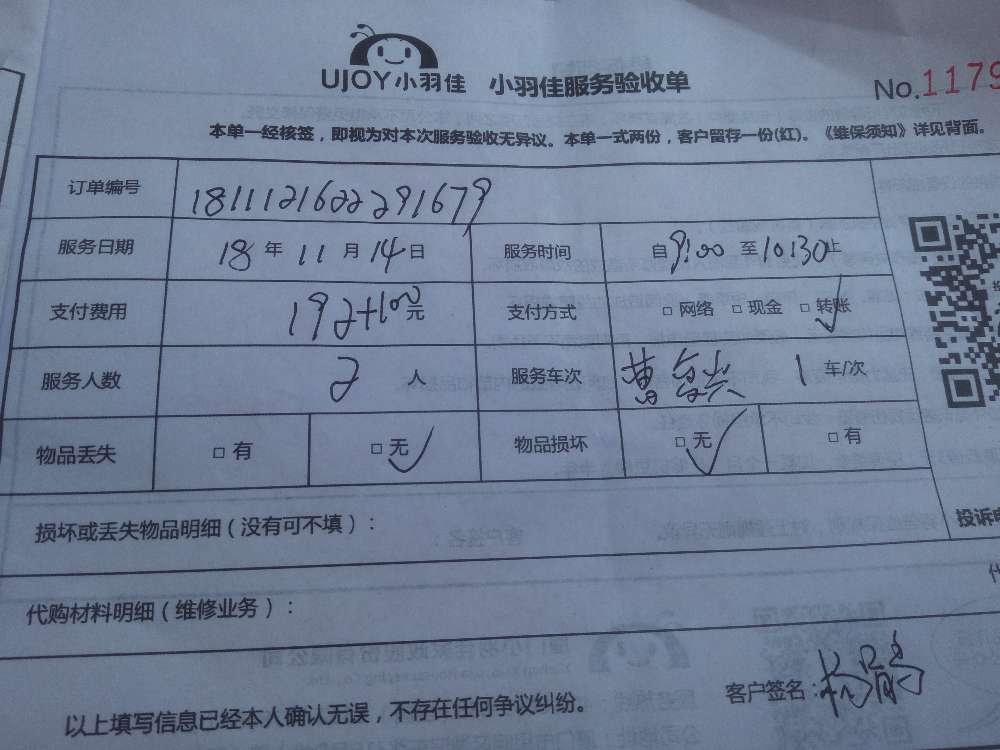 UJOY小羽佳 小羽佳服务验收单 No.1179
本单一经核签，即视为对本次服务验收无异议。本单一式两份，客户留存一份(红)。《维保须知》详见背面。
订单编号 1811121622291679
服务日期 18 年 11 月 14 日 服务时间 自 9:00 至 10:30 止
支付费用 192+100 元 支付方式 □ 网络 □ 现金 □ 转账 ✓
服务人数 2 人 服务车次 1 车/次
物品丢失 □ 有 □ 无 ✓ 物品损坏 □ 无 ✓ □ 有
损坏或丢失物品明细（没有可不填）：
投诉
代购材料明细（维修业务）：
以上填写信息已经本人确认无误，不存在任何争议纠纷。 客户签名：